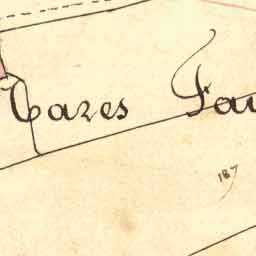 Cazes Fau
187